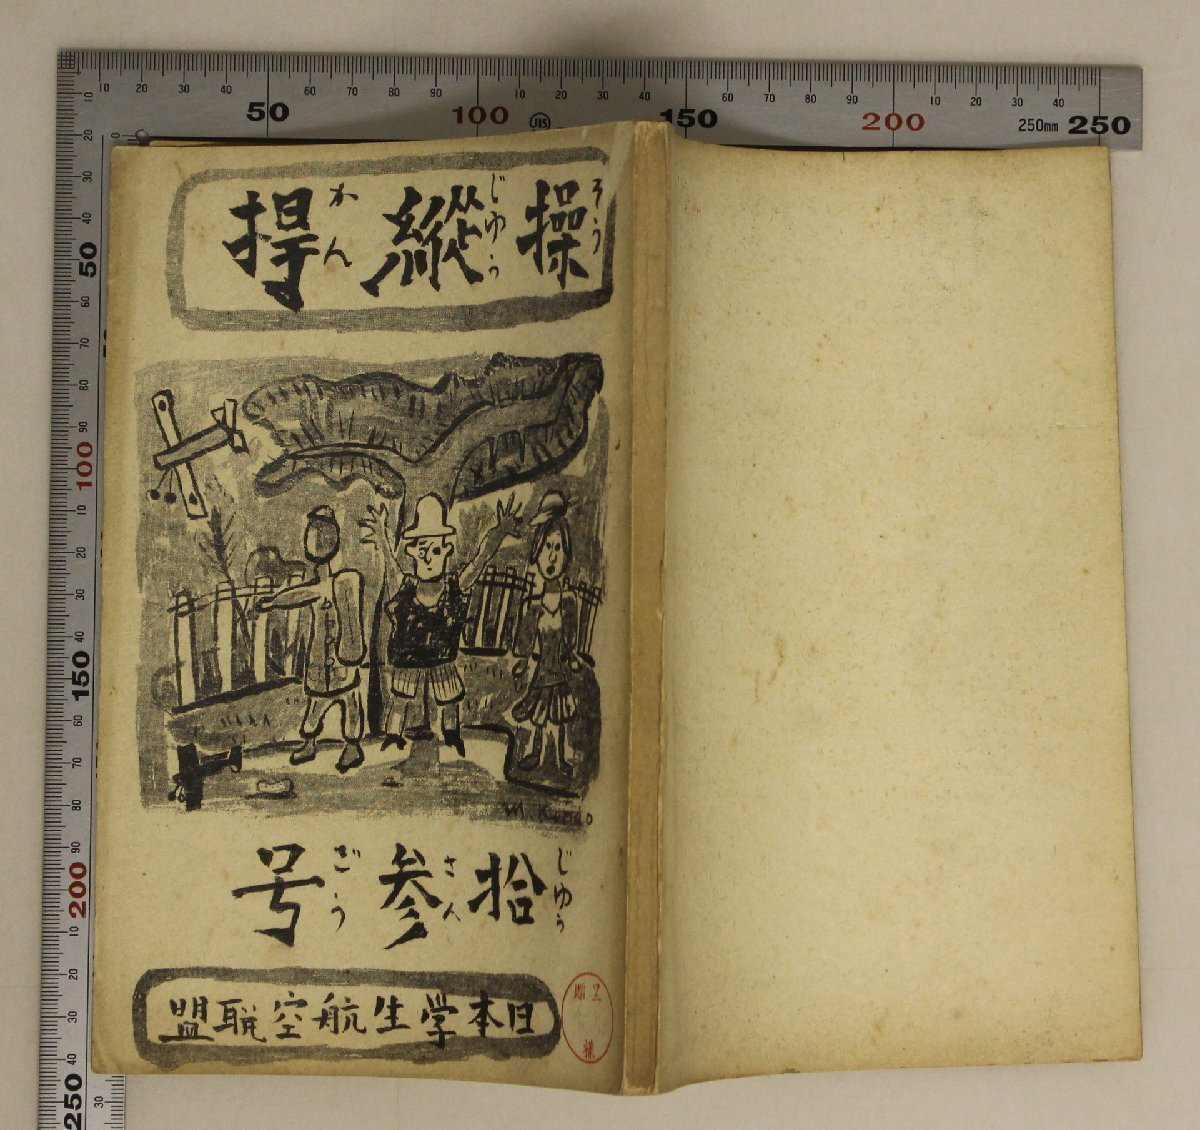 操縱捍
そうじゅうかん
M. Kondo
拾参号
じゅうさんごう
日本学生航空聯盟
呈
様
10 20 30 40 50 60 70 80 90 100 10 20 30 40 150 60 70 80 90 200 10 20 30 40 250mm 250
JIS
10 20 30 40 50 60 70 80 90 100 10 20 30 40 150 60 70 80 90 200 10 20 30 40 250
0 30